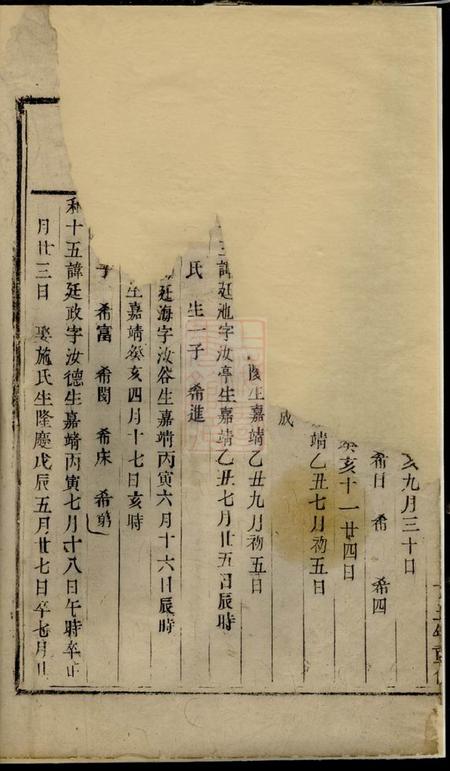 亥九月三十日
希日 希 希四
癸亥十一廿四日
靖乙丑七月初五日
成
生嘉靖乙丑九月初五日
三諱廷池字汝亭生嘉靖乙丑七月廿五日辰時
氏 生一子 希進
廷海字汝谷生嘉靖丙寅六月十六日辰時
生嘉靖癸亥四月十七日亥時
子 希富 希閔 希床 希弟
利十五諱廷政字汝德生嘉靖丙寅七月十八日午時卒正
月廿三日 娶施氏生隆慶戊辰五月廿七日卒七月廿